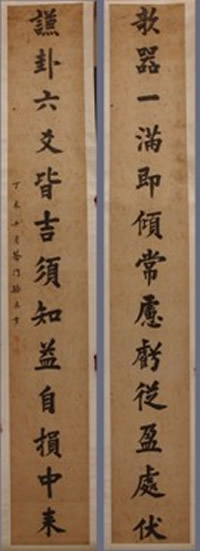 欹器一滿即傾常慮虧從盈處伏
謙卦六爻皆吉須知益自損中來